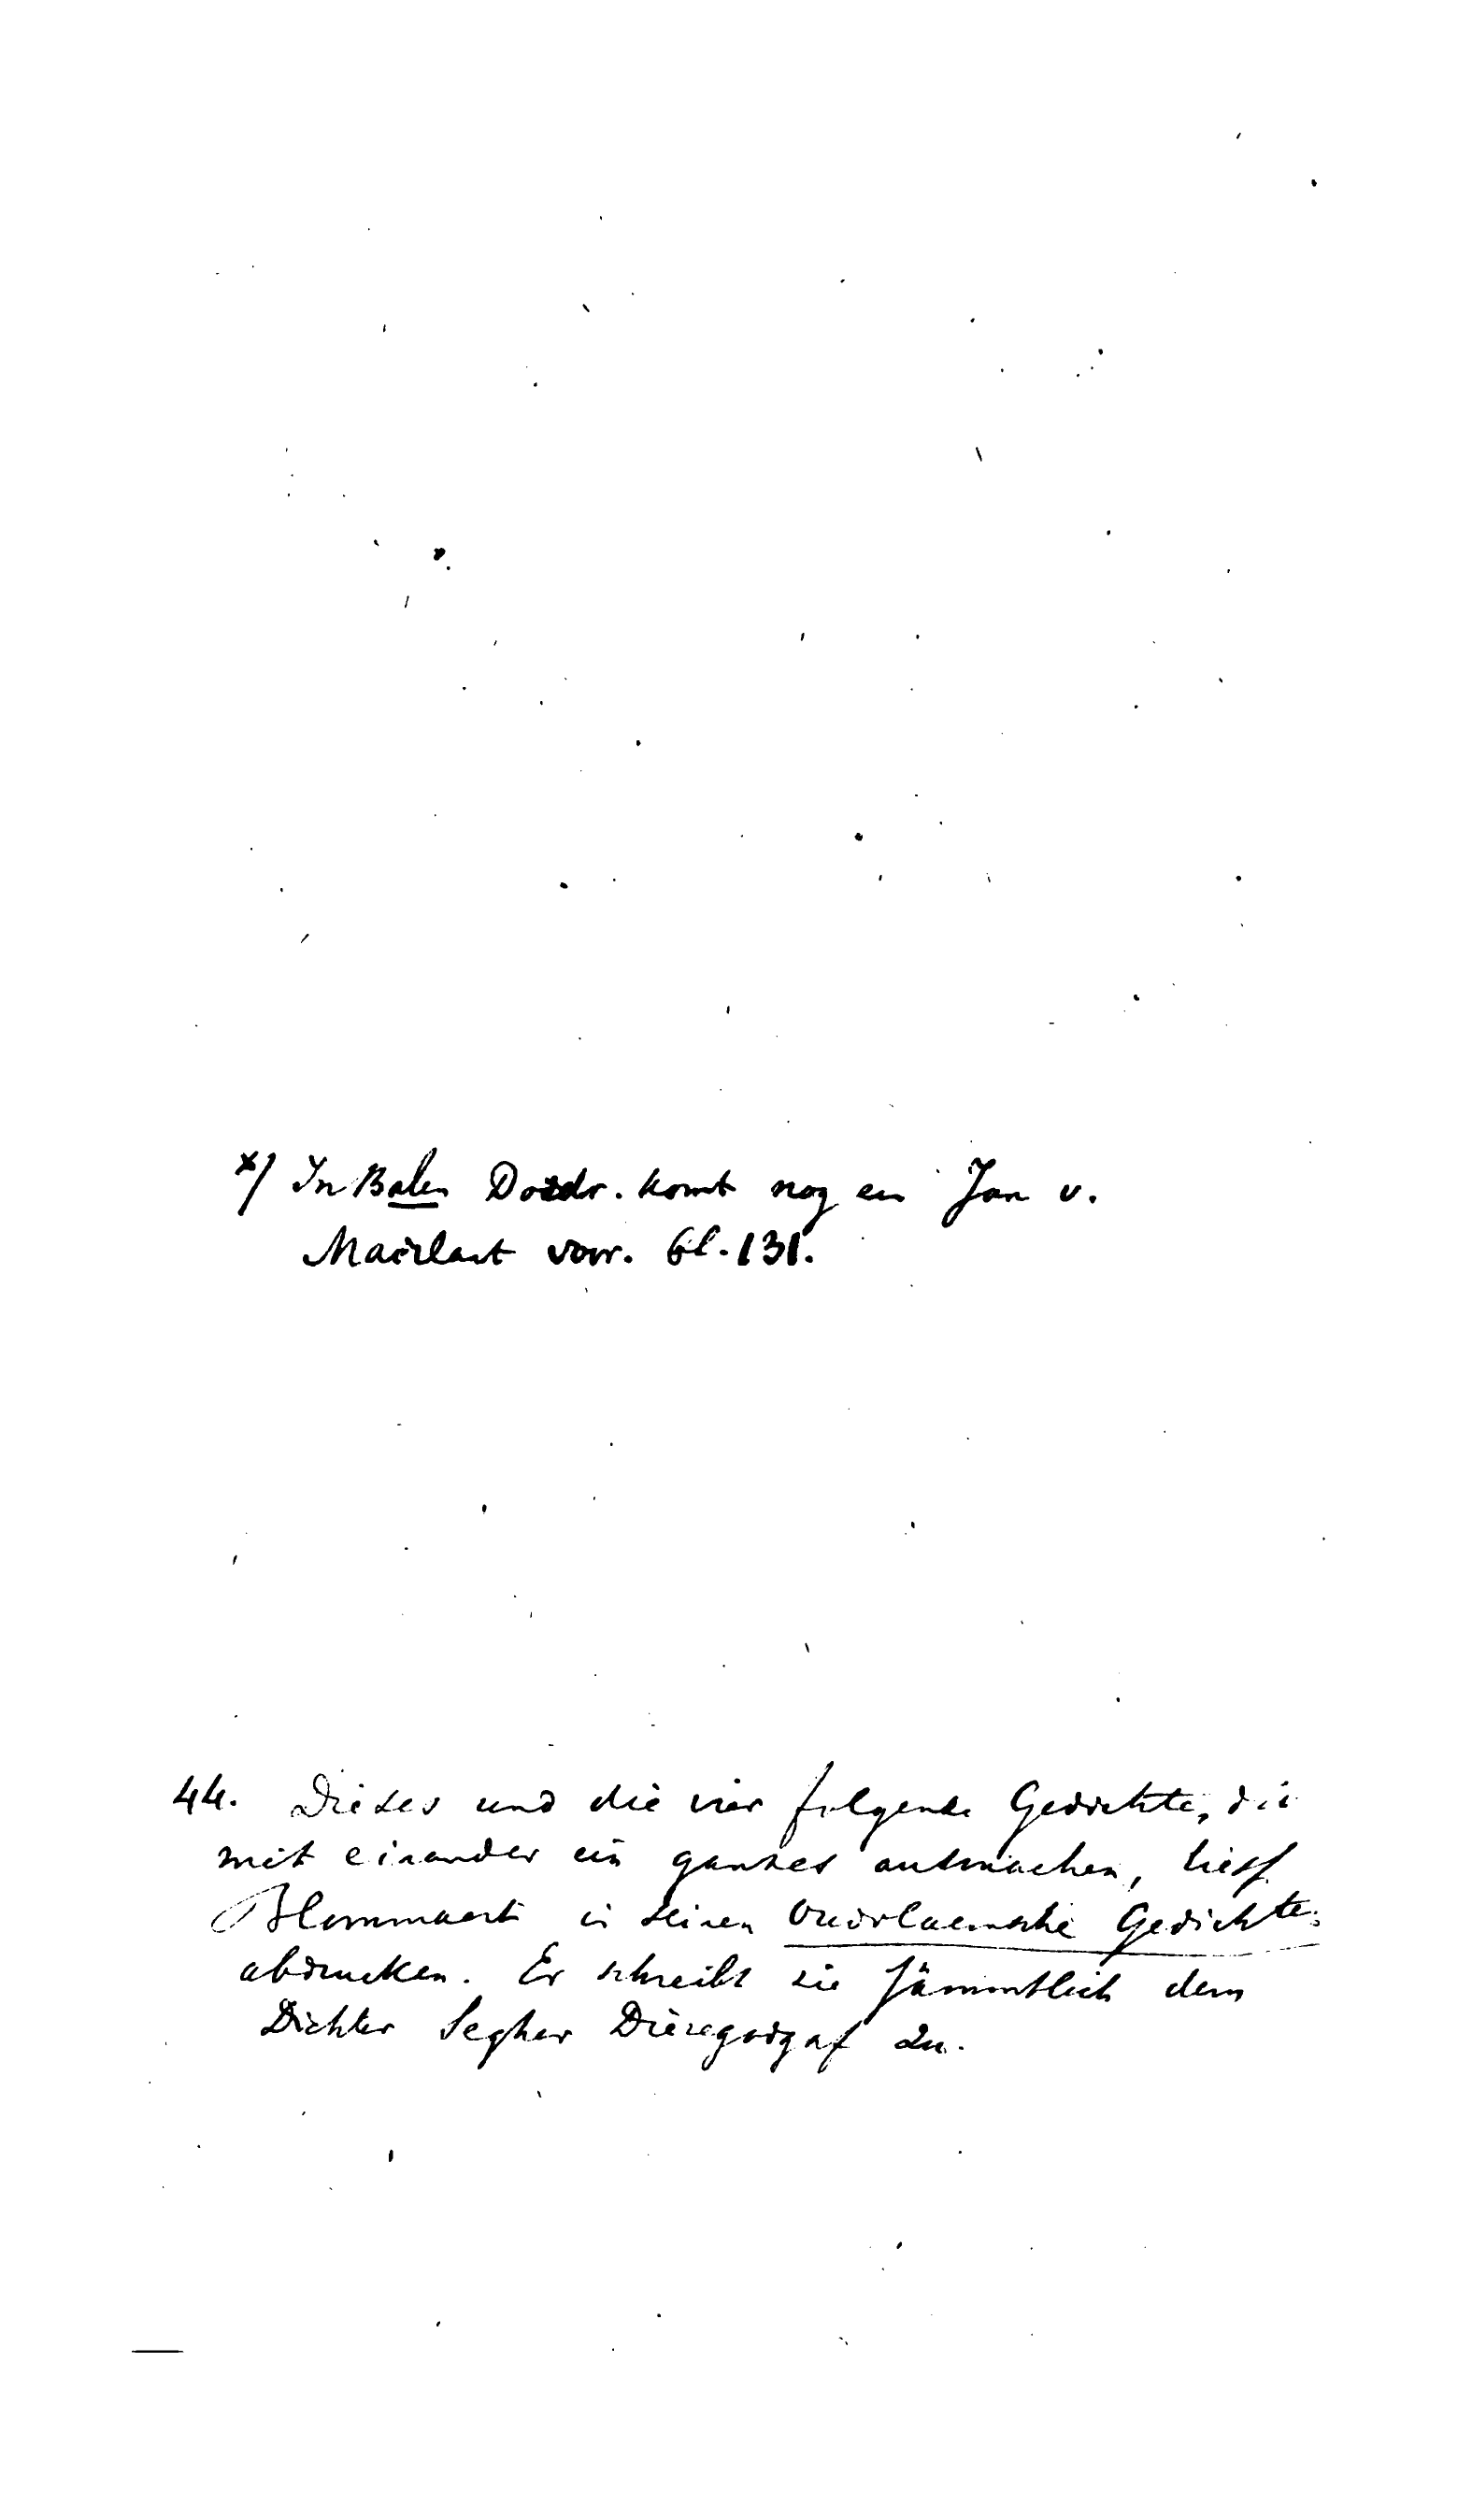 x) In Balen Dordr. komt nog en Jan v.
Maerlant voor. bl. 131.
44. Dieses und die vier folgende Gedichte, die
mit einander ein ganzes ausmachen, liess
Blommaert in seinen Oudvlaemsche Gedichte
abdrucken. Er schreibt sie sämmtlich dem
Dichter Segher Dieregodgaf zu.